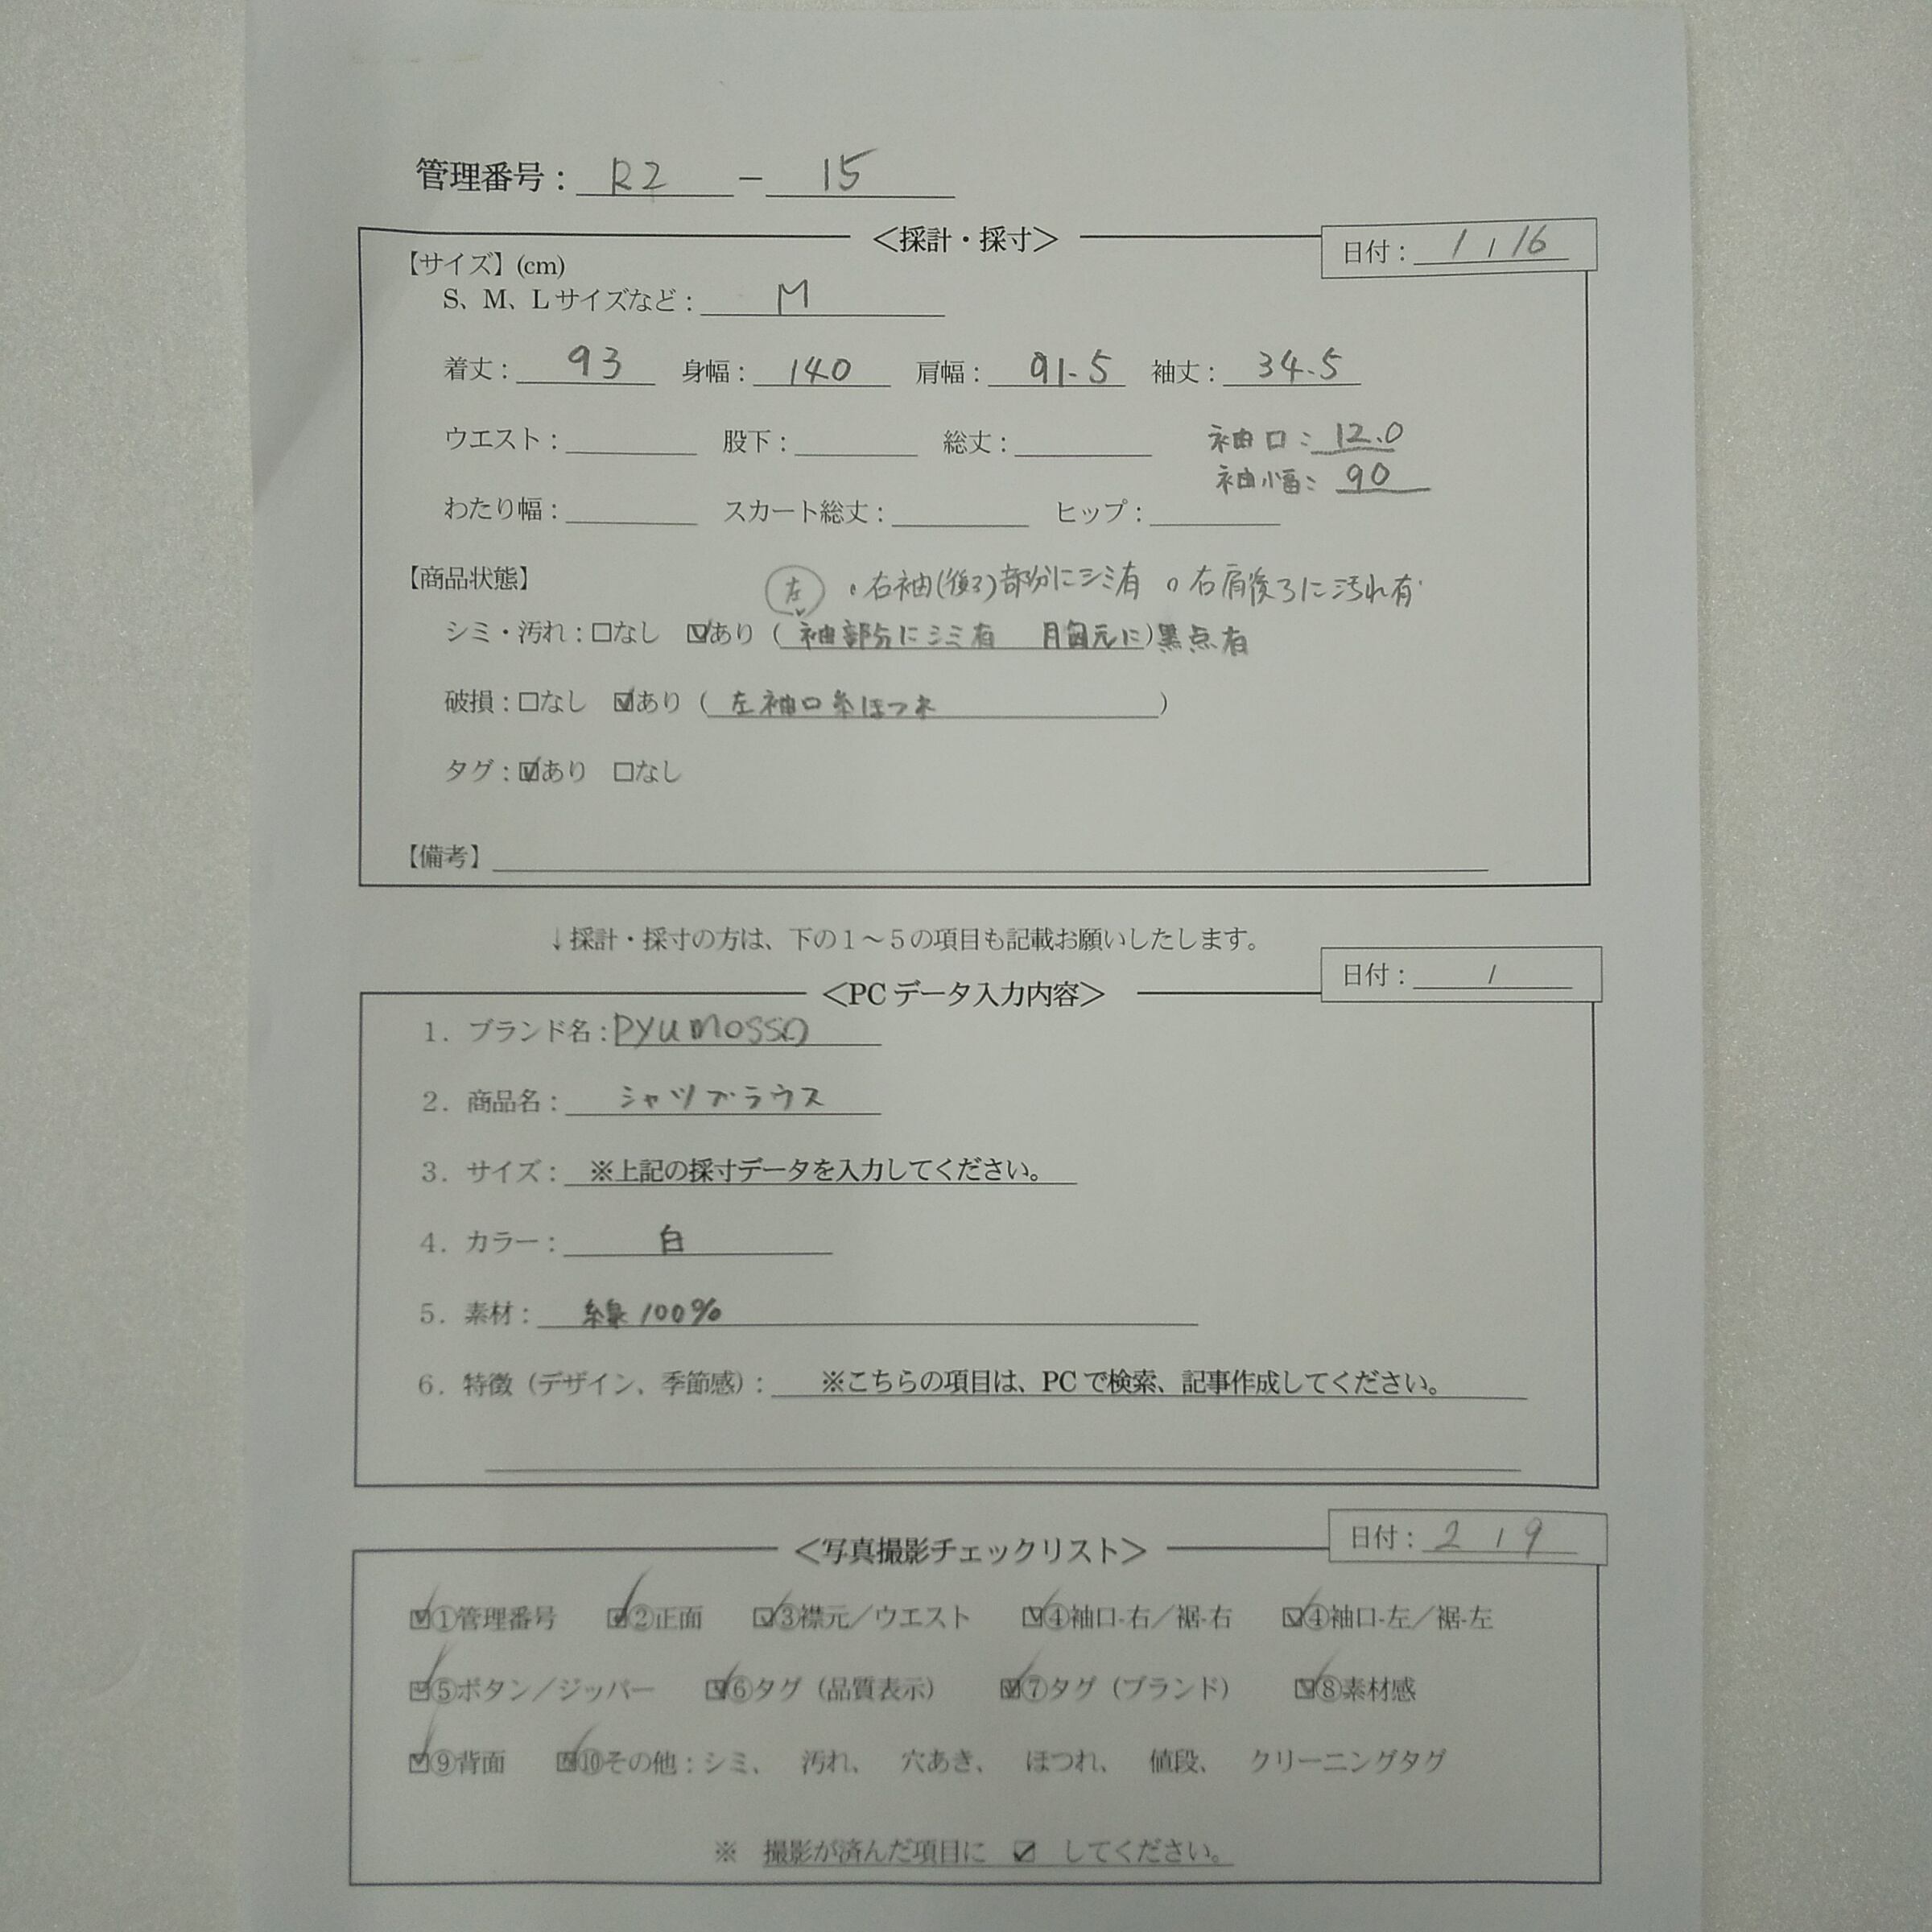 管理番号：R2 － 15
＜採計・採寸＞
日付：1 / 16
【サイズ】(cm)
S、M、Lサイズなど：M
着丈：93 身幅：140 肩幅：91.5 袖丈：34.5
ウエスト： 股下： 総丈： 袖口：12.0
袖幅：90
わたり幅： スカート総丈： ヒップ：
【商品状態】 左 ・右袖(後ろ)部分にシミ有 ○右肩後ろに汚れ有
シミ・汚れ：□なし ☑あり（袖部分にシミ有 胸元に）黒点有
破損：□なし ☑あり（左袖口糸ほつれ）
タグ：☑あり □なし
【備考】
↓採計・採寸の方は、下の１～５の項目も記載お願いしたします。
＜PCデータ入力内容＞
日付： /
１．ブランド名：pyumosso
２．商品名：シャツブラウス
３．サイズ：※上記の採寸データを入力してください。
４．カラー：白
５．素材：綿100%
６．特徴（デザイン、季節感）：※こちらの項目は、PCで検索、記事作成してください。
＜写真撮影チェックリスト＞
日付：2 / 9
☑①管理番号 ☑②正面 ☑③襟元／ウエスト ☑④袖口-右／裾-右 ☑④袖口-左／裾-左
☑⑤ボタン／ジッパー ☑⑥タグ（品質表示） ☑⑦タグ（ブランド） ☑⑧素材感
☑⑨背面 ☑⑩その他：シミ、 汚れ、 穴あき、 ほつれ、 値段、 クリーニングタグ
※ 撮影が済んだ項目に ☑ してください。